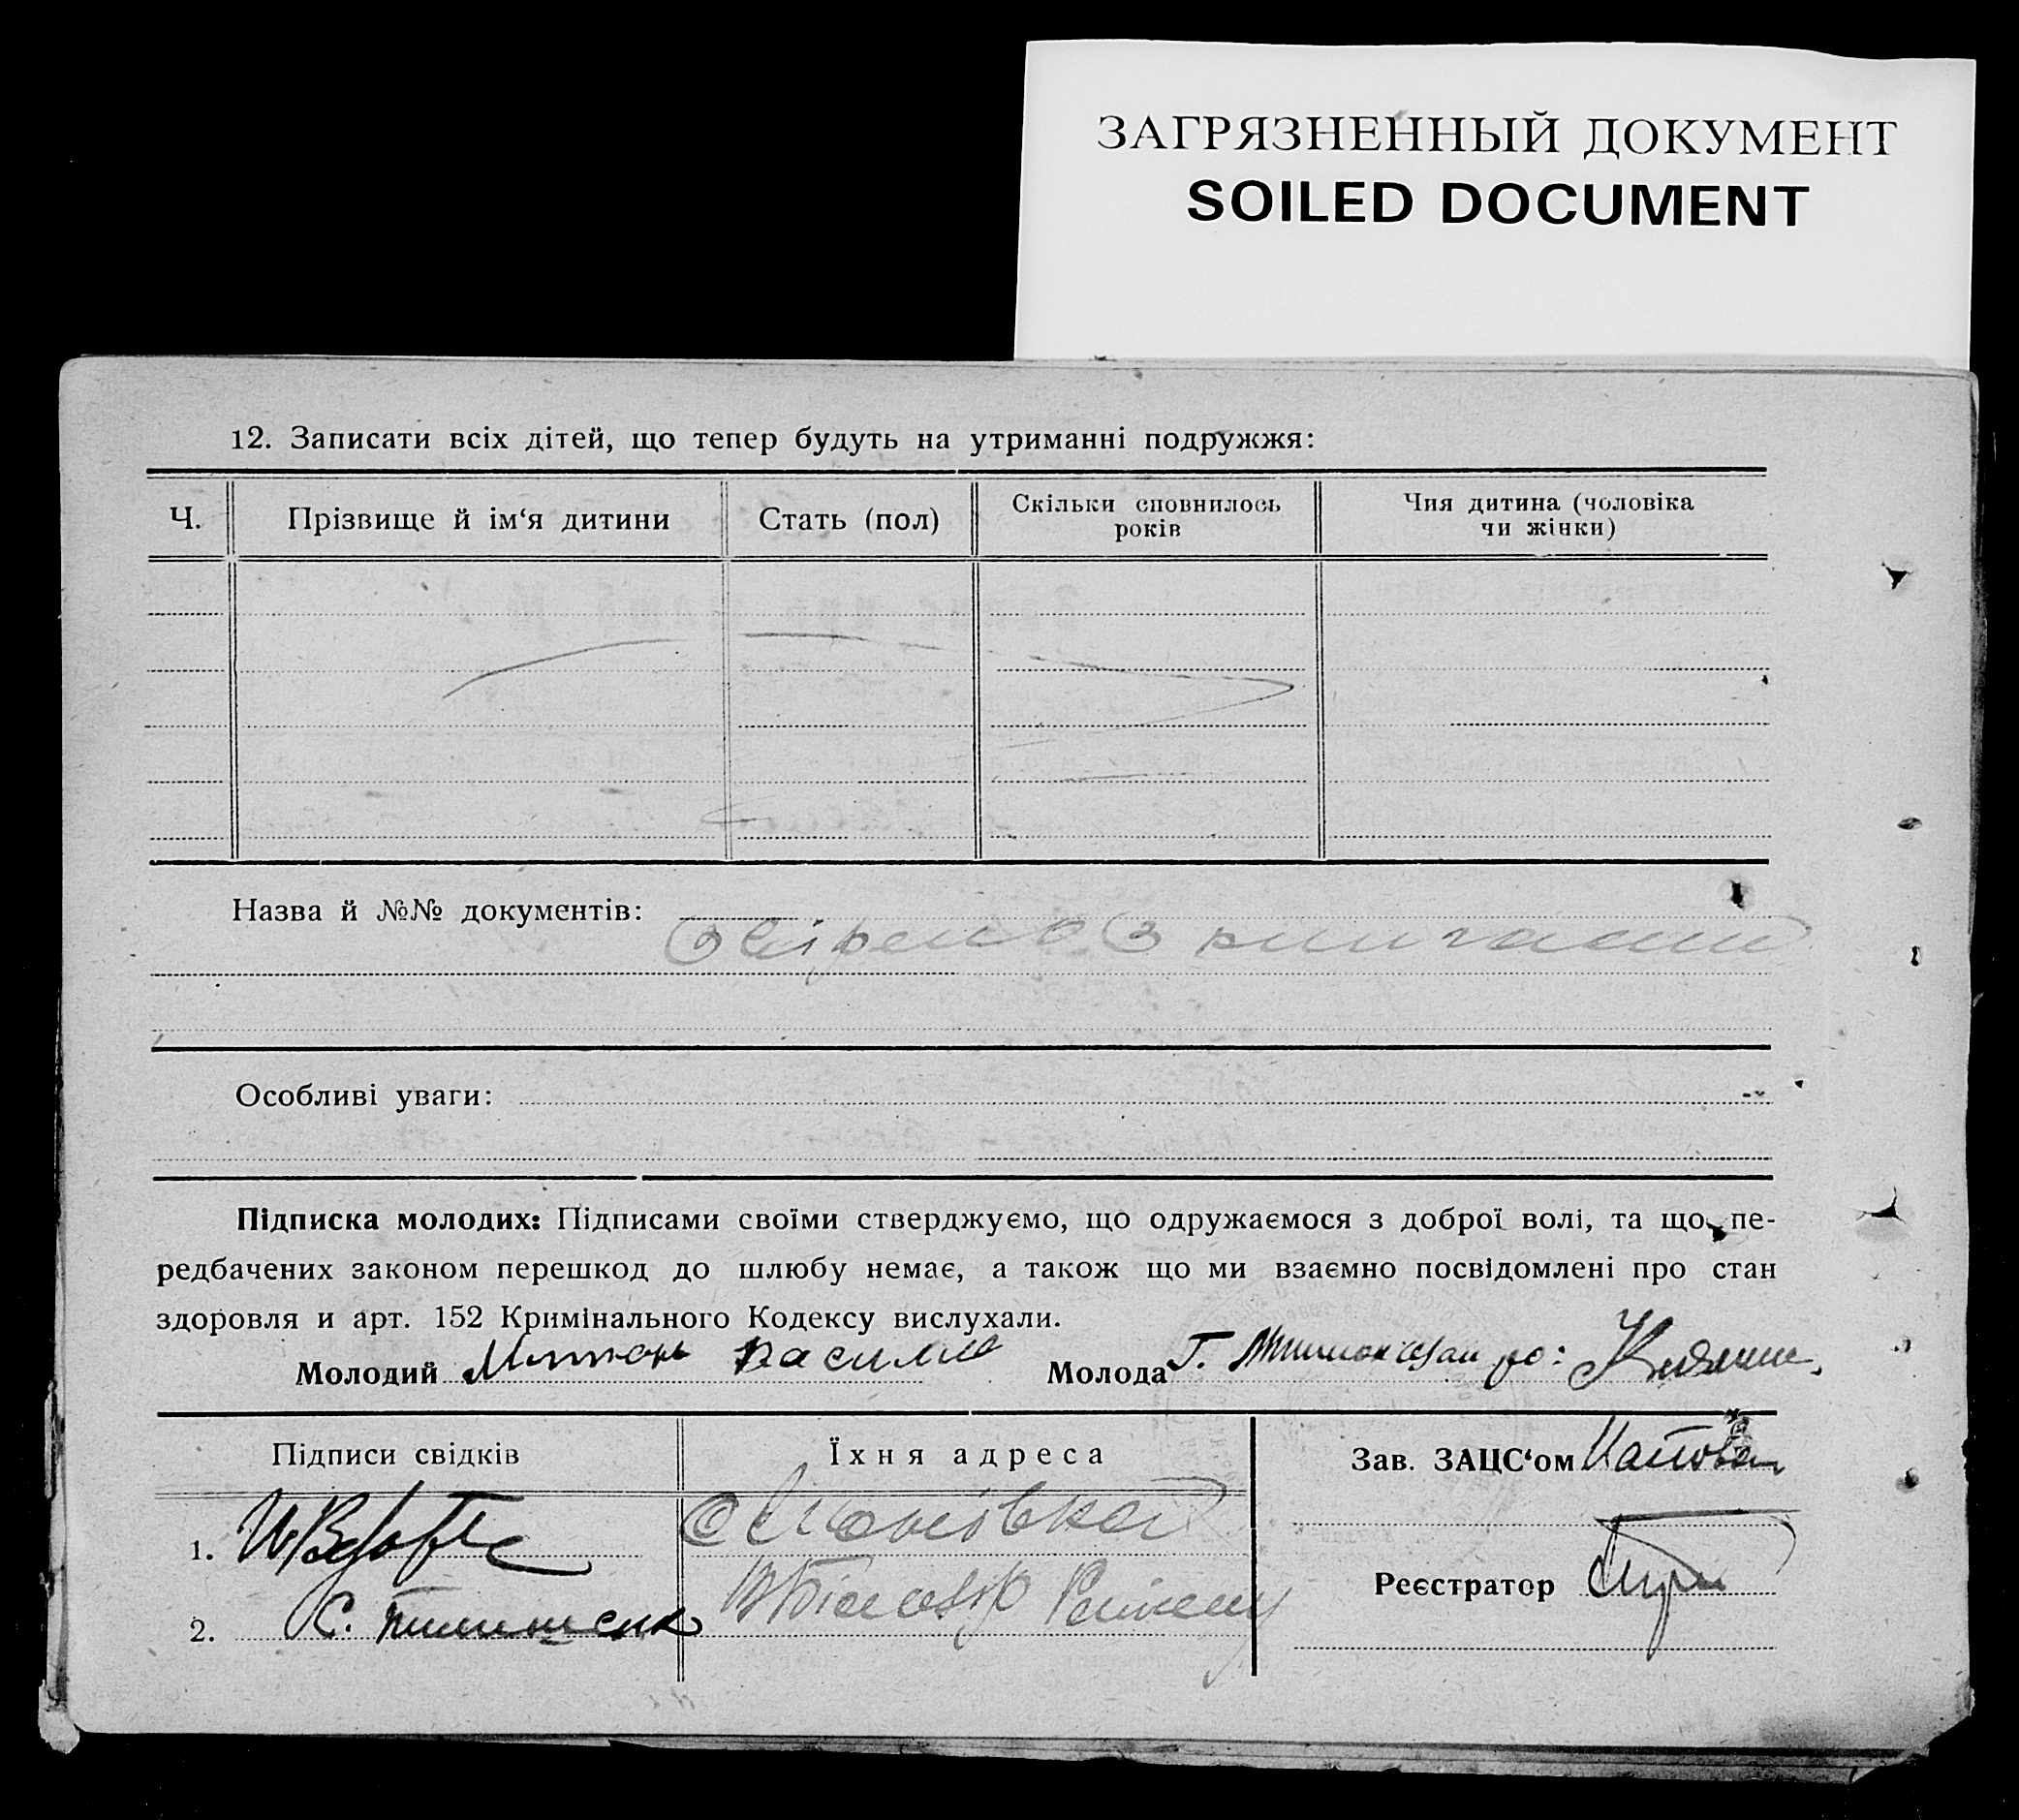 ЗАГРЯЗНЕННЫЙ ДОКУМЕНТ
SOILED DOCUMENT
12. Записати всіх дітей, що тепер будуть на утриманні подружжя:
Ч. Прізвище й ім‘я дитини Стать (пол) Скільки сповнилось років Чия дитина (чоловіка чи жінки)
Назва й №№ документів: звірено з книгами
Особливі уваги:
Підписка молодих: Підписами своїми стверджуємо, що одружаємося з доброї волі, та що пе-
редбачених законом перешкод до шлюбу немає, а також що ми взаємно посвідомлені про стан
здоровля и арт. 152 Кримінального Кодексу вислухали.
Молодий Василь Молода Г.
Підписи свідків Їхня адреса Зав. ЗАЦС‘ом
1.
Реєстратор
2. С.